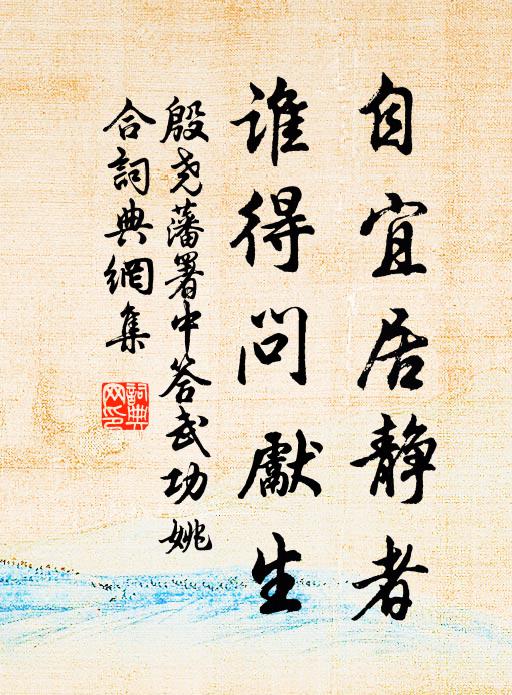 自宜居静者
誰得問獻生
殷尧藩署中答武功姚
合詞典網集
詞典
网印